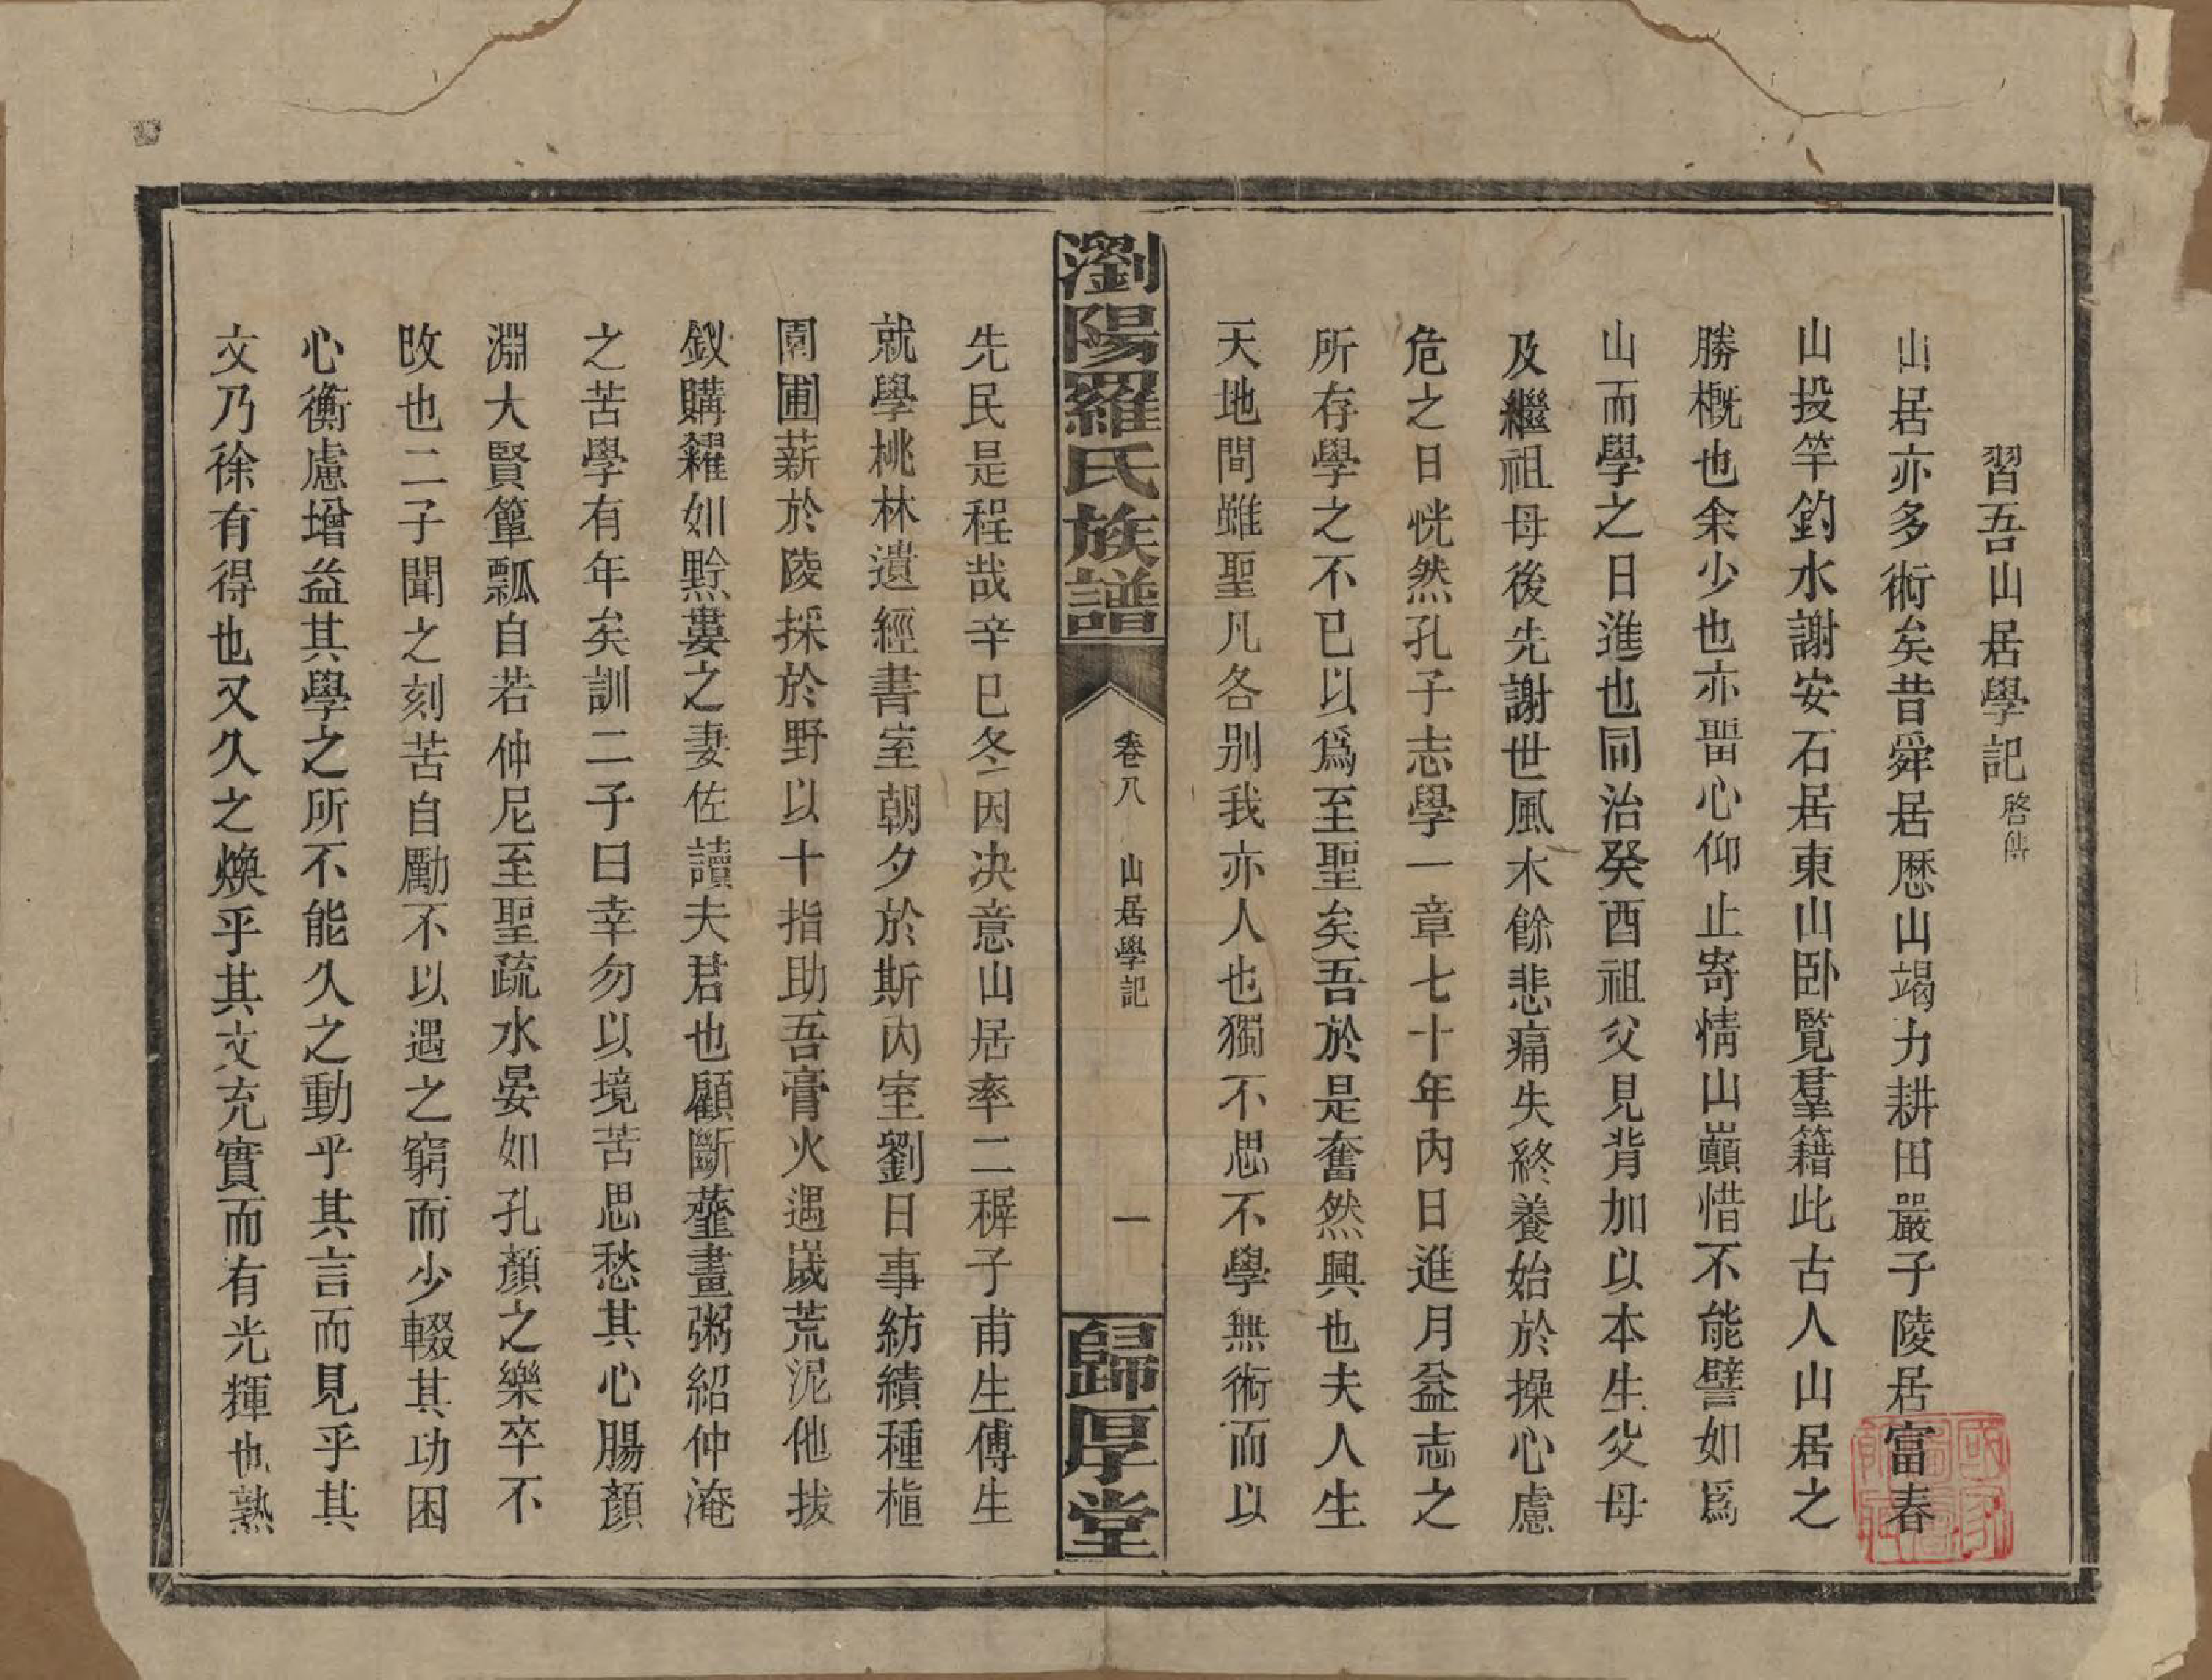 習吾山居學記 啓傳
山居亦多術矣昔舜居歷山竭力耕田嚴子陵居富春
山投竿釣水謝安石居東山臥覽羣籍此古人山居之
勝概也余少也亦畱心仰止寄情山巔惜不能譬如爲
山而學之日進也同治癸酉祖父見背加以本生父母
及繼祖母後先謝世風木餘悲痛失終養始於操心慮
危之日恍然孔子志學一章七十年內日進月益志之
所存學之不已以爲至聖矣吾於是奮然興也夫人生
天地間雖聖凡各别我亦人也獨不思不學無術而以
瀏陽羅氏族譜 卷八 山居學記 一 歸厚堂
先民是程哉辛巳冬因決意山居率二穉子甫生傅生
就學桃林遺經書室朝夕於斯內室劉日事紡績種植
園圃薪於陵採於野以十指助吾膏火遇歲荒泥他拔
釵購糴如黔婁之妻佐讀夫君也顧斷虀畫粥紹仲淹
之苦學有年矣訓二子曰幸勿以境苦思愁其心腸顏
淵大賢簞瓢自若仲尼至聖疏水晏如孔顏之樂卒不
改也二子聞之刻苦自勵不以遇之窮而少輟其功困
心衡慮增益其學之所不能久之動乎其言而見乎其
文乃徐有得也又久之煥乎其文充實而有光輝也熟